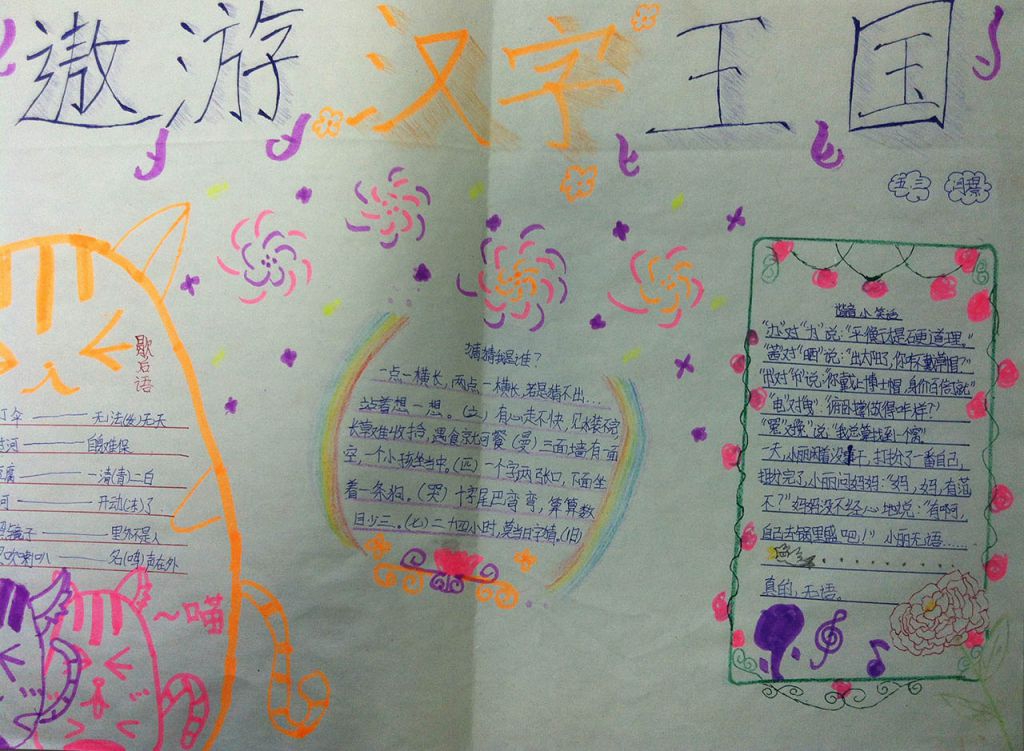 遨游汉字王国
五三
歇后语
伞 —— 无法(发)无天
过河 —— 自身难保
豆腐 —— 一清(青)二白
河 —— 开动(冻)了
照镜子 —— 里外不是人
吹喇叭 —— 名(鸣)声在外
~喵
猜猜我是谁？
一点一横长，两点一横长，若是猜不出…
站着想一想。(立) 有心走不快，见水装不完
长草难收拾，遇食就可餐 (曼) 三面墙有一面
空，一个小孩坐当中。(匹) 一个字两张口，下面坐
着一条狗。(哭) 十字尾巴弯弯，算算数
目少三。(七) 二十四小时，莫当日字猜。(旧)
谐音小笑话
"办"对"为"说："平衡才是硬道理。"
"茜"对"晒"说："出太阳，你咋不戴草帽？"
对"币"说："你戴上博士帽，身价百倍就"
"电"对"曳"："俯卧撑做得咋样？"
说："我总算找到一个窝"
一天，小丽闲着没事干，打扮了一番自己，
打扮完了，小丽问妈妈："妈，妈，有范
不？"妈妈漫不经心地说："有啊，
自己去锅里盛吧！" 小丽无语……
真的，无语。